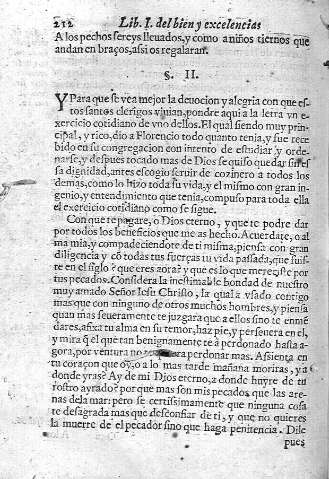 212 Lib. I. del bien y excelencias
A los pechos sereys lleuados, y como a niños tiernos que
andan en braços, assi os regalaran.
§. II.
Y Para que se vea mejor la deuocion y alegria con que es-
tos santos clerigos viuian, pondre aqui a la letra vn e-
xercicio cotidiano de vno dellos. El qual siendo muy prin-
cipal, y rico, dio a Florencio todo quanto tenia, y fue rece
bido en su congregacion con intento de estudiar y orde-
narse, y despues tocado mas de Dios se quiso quedar sin es
sa dignidad, antes escogio seruir de cozinero a todos los
demas, como lo hizo toda su vida, y el mismo con gran in-
genio, y entendimiento que tenia, compuso para toda ella
el exercicio cotidiano como se sigue.
Con que te pagare, o Dios eterno, y que te podre dar
por todos los beneficios que me as hecho. Acuerdate, o al
ma mia, y compadeciendote de ti misma, piensa con gran
diligencia y cõ todas tus fuerças tu vida passada, que fuis-
te en el siglo? que eres aora? y que es lo que mereces por
tus pecados. Considera la inestimable bondad de nuestro
muy amado Señor Iesu Christo, la qual a vsado contigo
mas que con ninguno de otros muchos hombres, y piensa
quan mas seueramente te juzgara que a ellos sino te enmẽ
dares, afixa tu alma en su temor, haz pie, y perseuera en el,
y mira q̃ el que tan benignamente te à perdonado hasta a-
gora, por ventura no querra perdonar mas. Assienta en
tu coraçon que oy, o a lo mas tarde mañana moriras, y a
donde yras? Ay de mi Dios eterno, a donde huyre de tu
rostro ayrado? porque mas son mis pecados que las are-
nas dela mar: pero se certissimamente que ninguna cosa
te desagrada mas que desconfiar de ti, y que no quieres
la muerte de el pecador sino que haga penitencia. Dile
pues